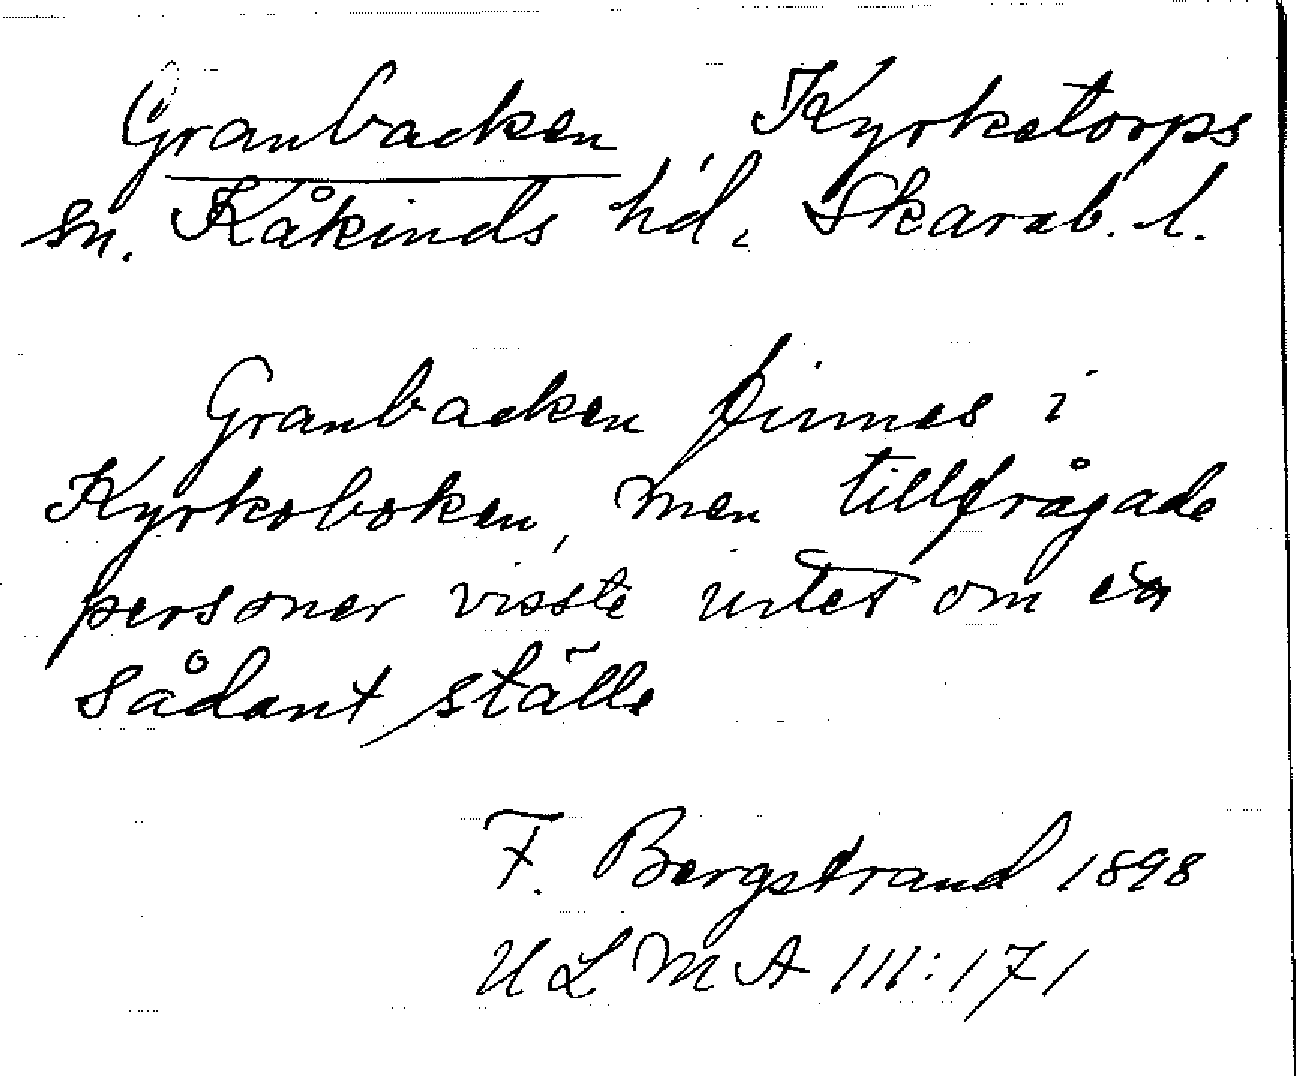 Granbacken Kyrketorps
sn. Kåkinds hd. Skarab. l.
Granbacken finnes i
Kyrkoboken, men tillfrågade
personer visste intet om en
sådant ställe
F. Bergstrand 1898
ULMA 111:171